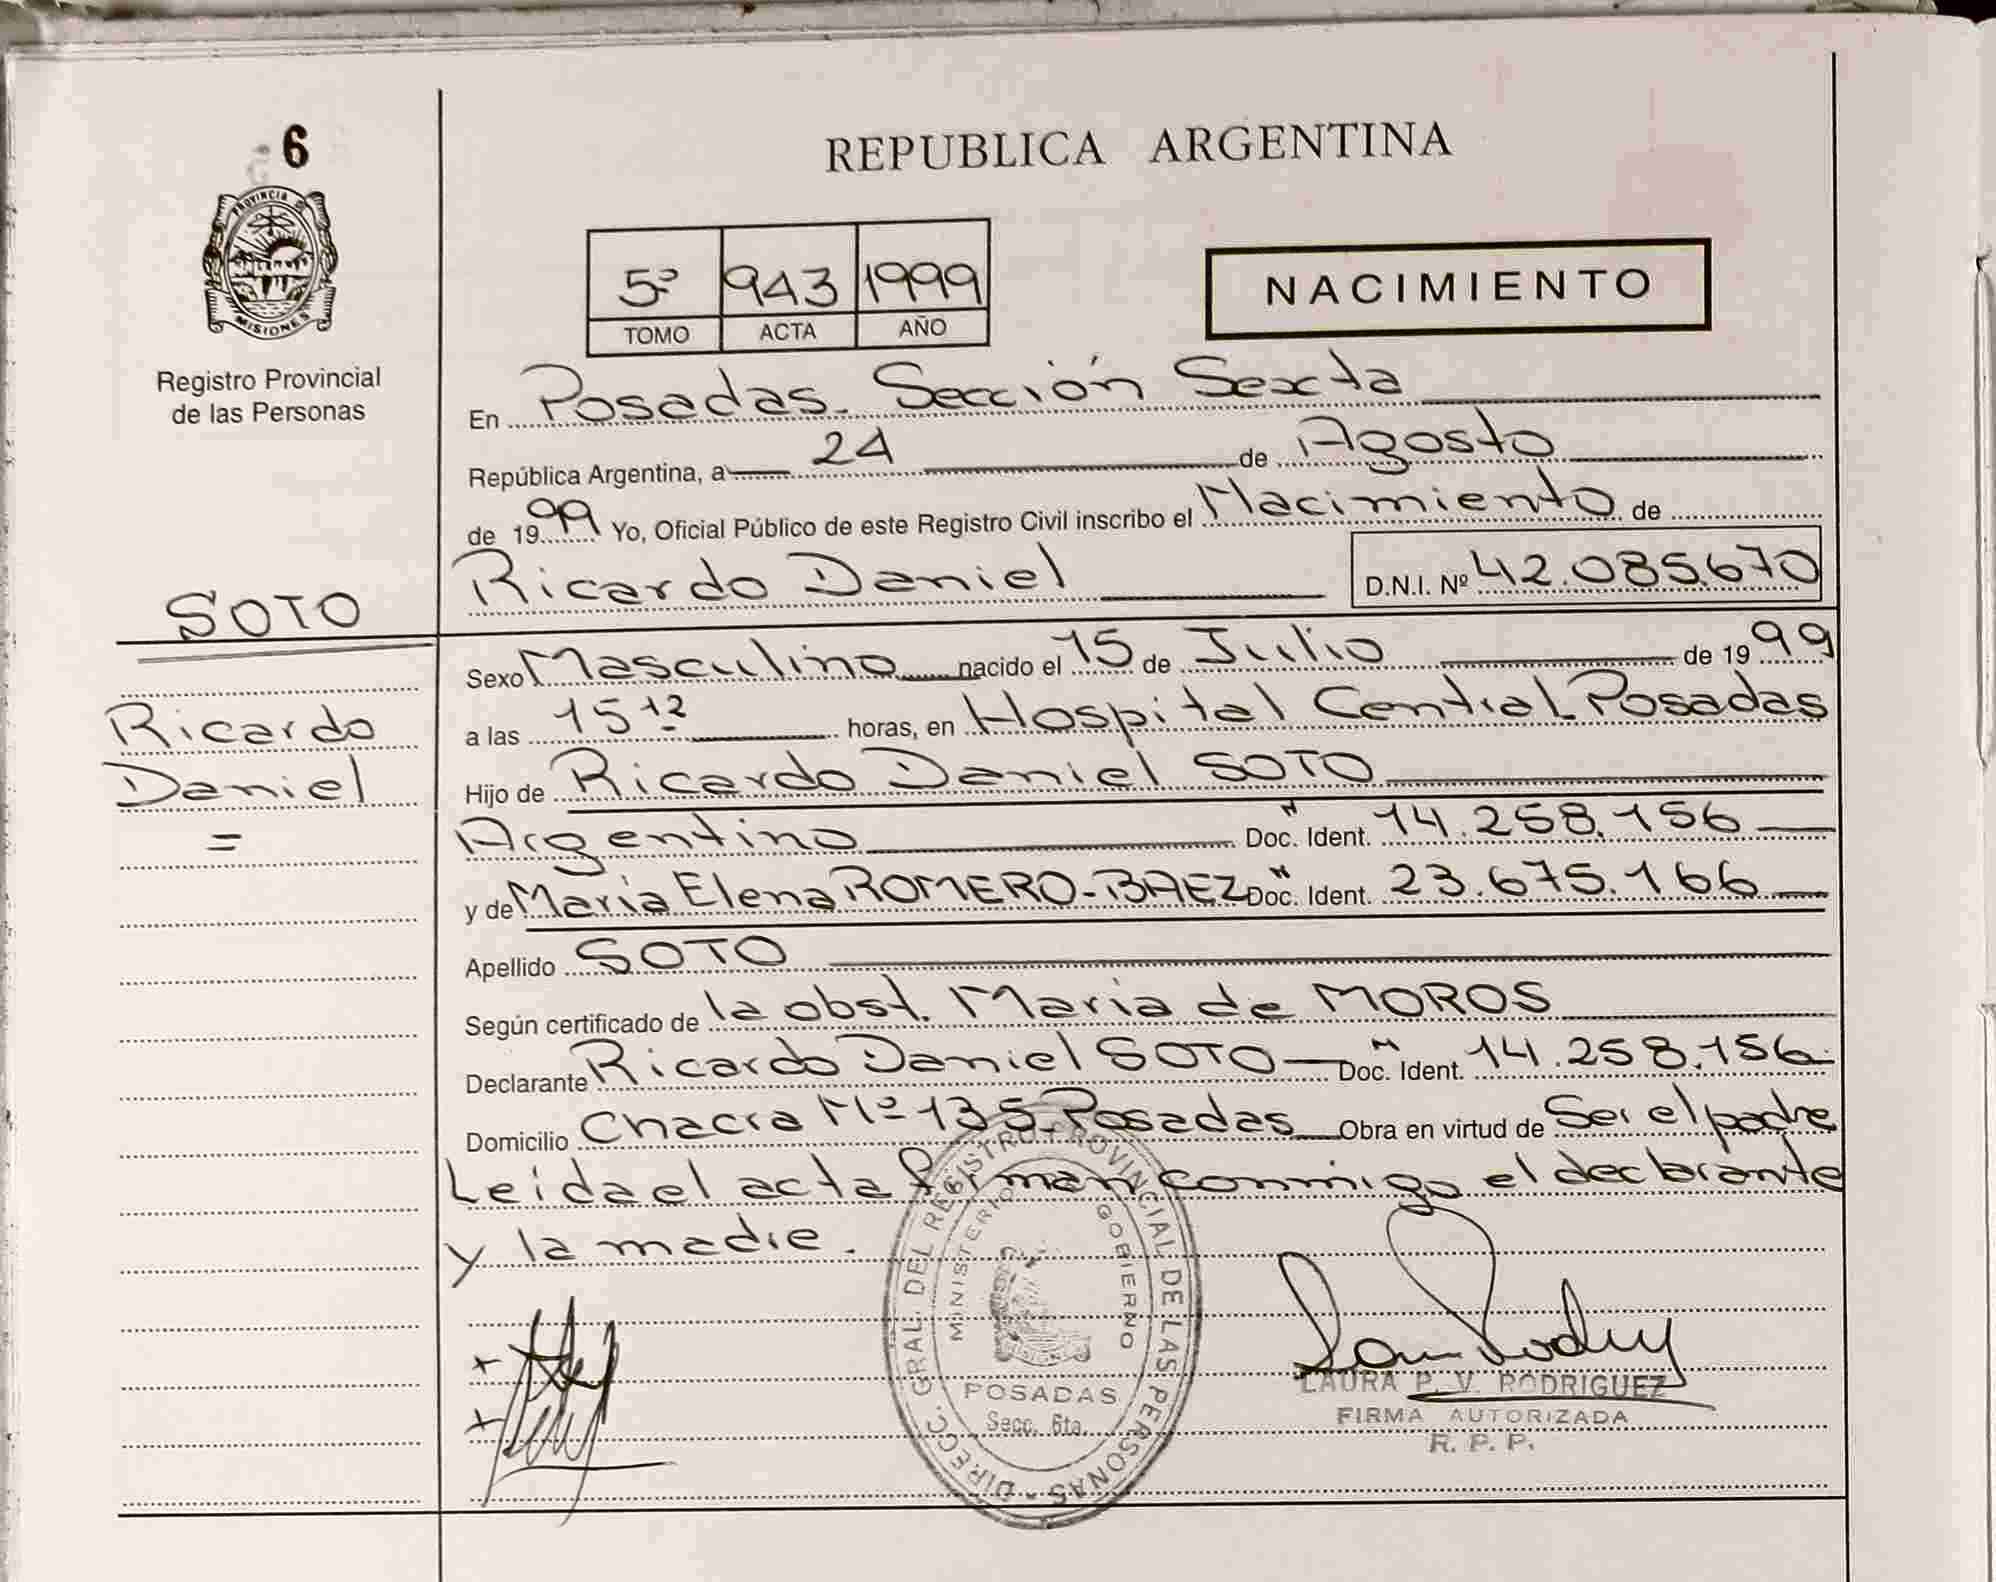 6
PROVINCIA DE
MISIONES
Registro Provincial
de las Personas
REPUBLICA ARGENTINA
5º 943 1999
TOMO ACTA AÑO
NACIMIENTO
En Posadas. Sección Sexta
República Argentina, a 24 de Agosto
de 1999 Yo, Oficial Público de este Registro Civil inscribo el Nacimiento de
Ricardo Daniel D.N.I. Nº 42.085.670
SOTO
Ricardo
Daniel
=
Sexo Masculino nacido el 15 de Julio de 1999
a las 15 12 horas, en Hospital Central Posadas
Hijo de Ricardo Daniel SOTO
Argentino Doc. Ident. N 14.258.156
y de Maria Elena ROMERO-BAEZ Doc. Ident. N 23.675.166
Apellido SOTO
Según certificado de la obst. Maria de MOROS
Declarante Ricardo Daniel SOTO Doc. Ident. N 14.258.156
Domicilio Chacra Nº 135. Posadas Obra en virtud de Ser el padre
Leida el acta firman conmigo el declarante
y la madre.
DIRECC. GRAL. DEL REGISTRO PROVINCIAL DE LAS PERSONAS -
MINISTERIO GOBIERNO
POSADAS
Secc. 6ta.
LAURA P. V. RODRIGUEZ
FIRMA AUTORIZADA
R. P. P.